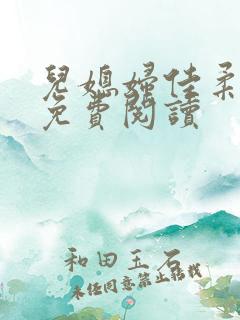 兒媳婦佳柔
免費閱讀
和田玉石
未經同意禁止轉載